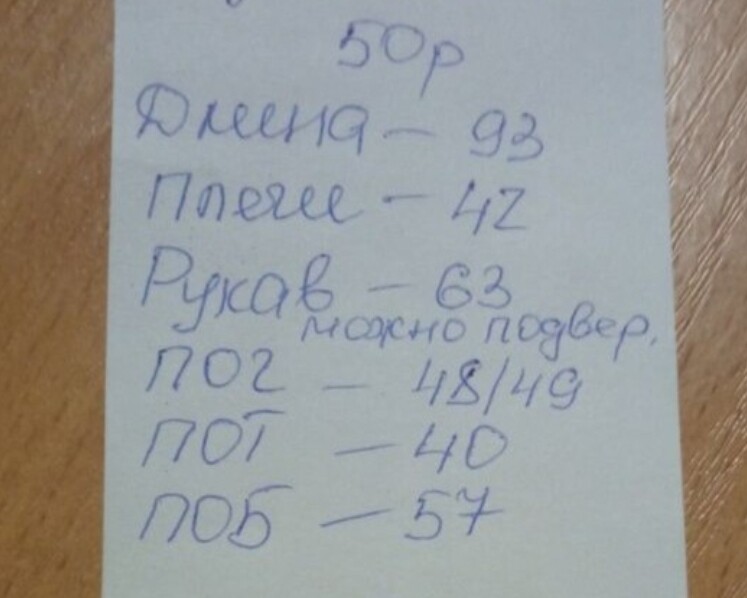 50р
Длина – 93
Плечи – 42
Рукав – 63
можно подвер.
ПОГ – 48/49
ПОТ – 40
ПОБ – 57